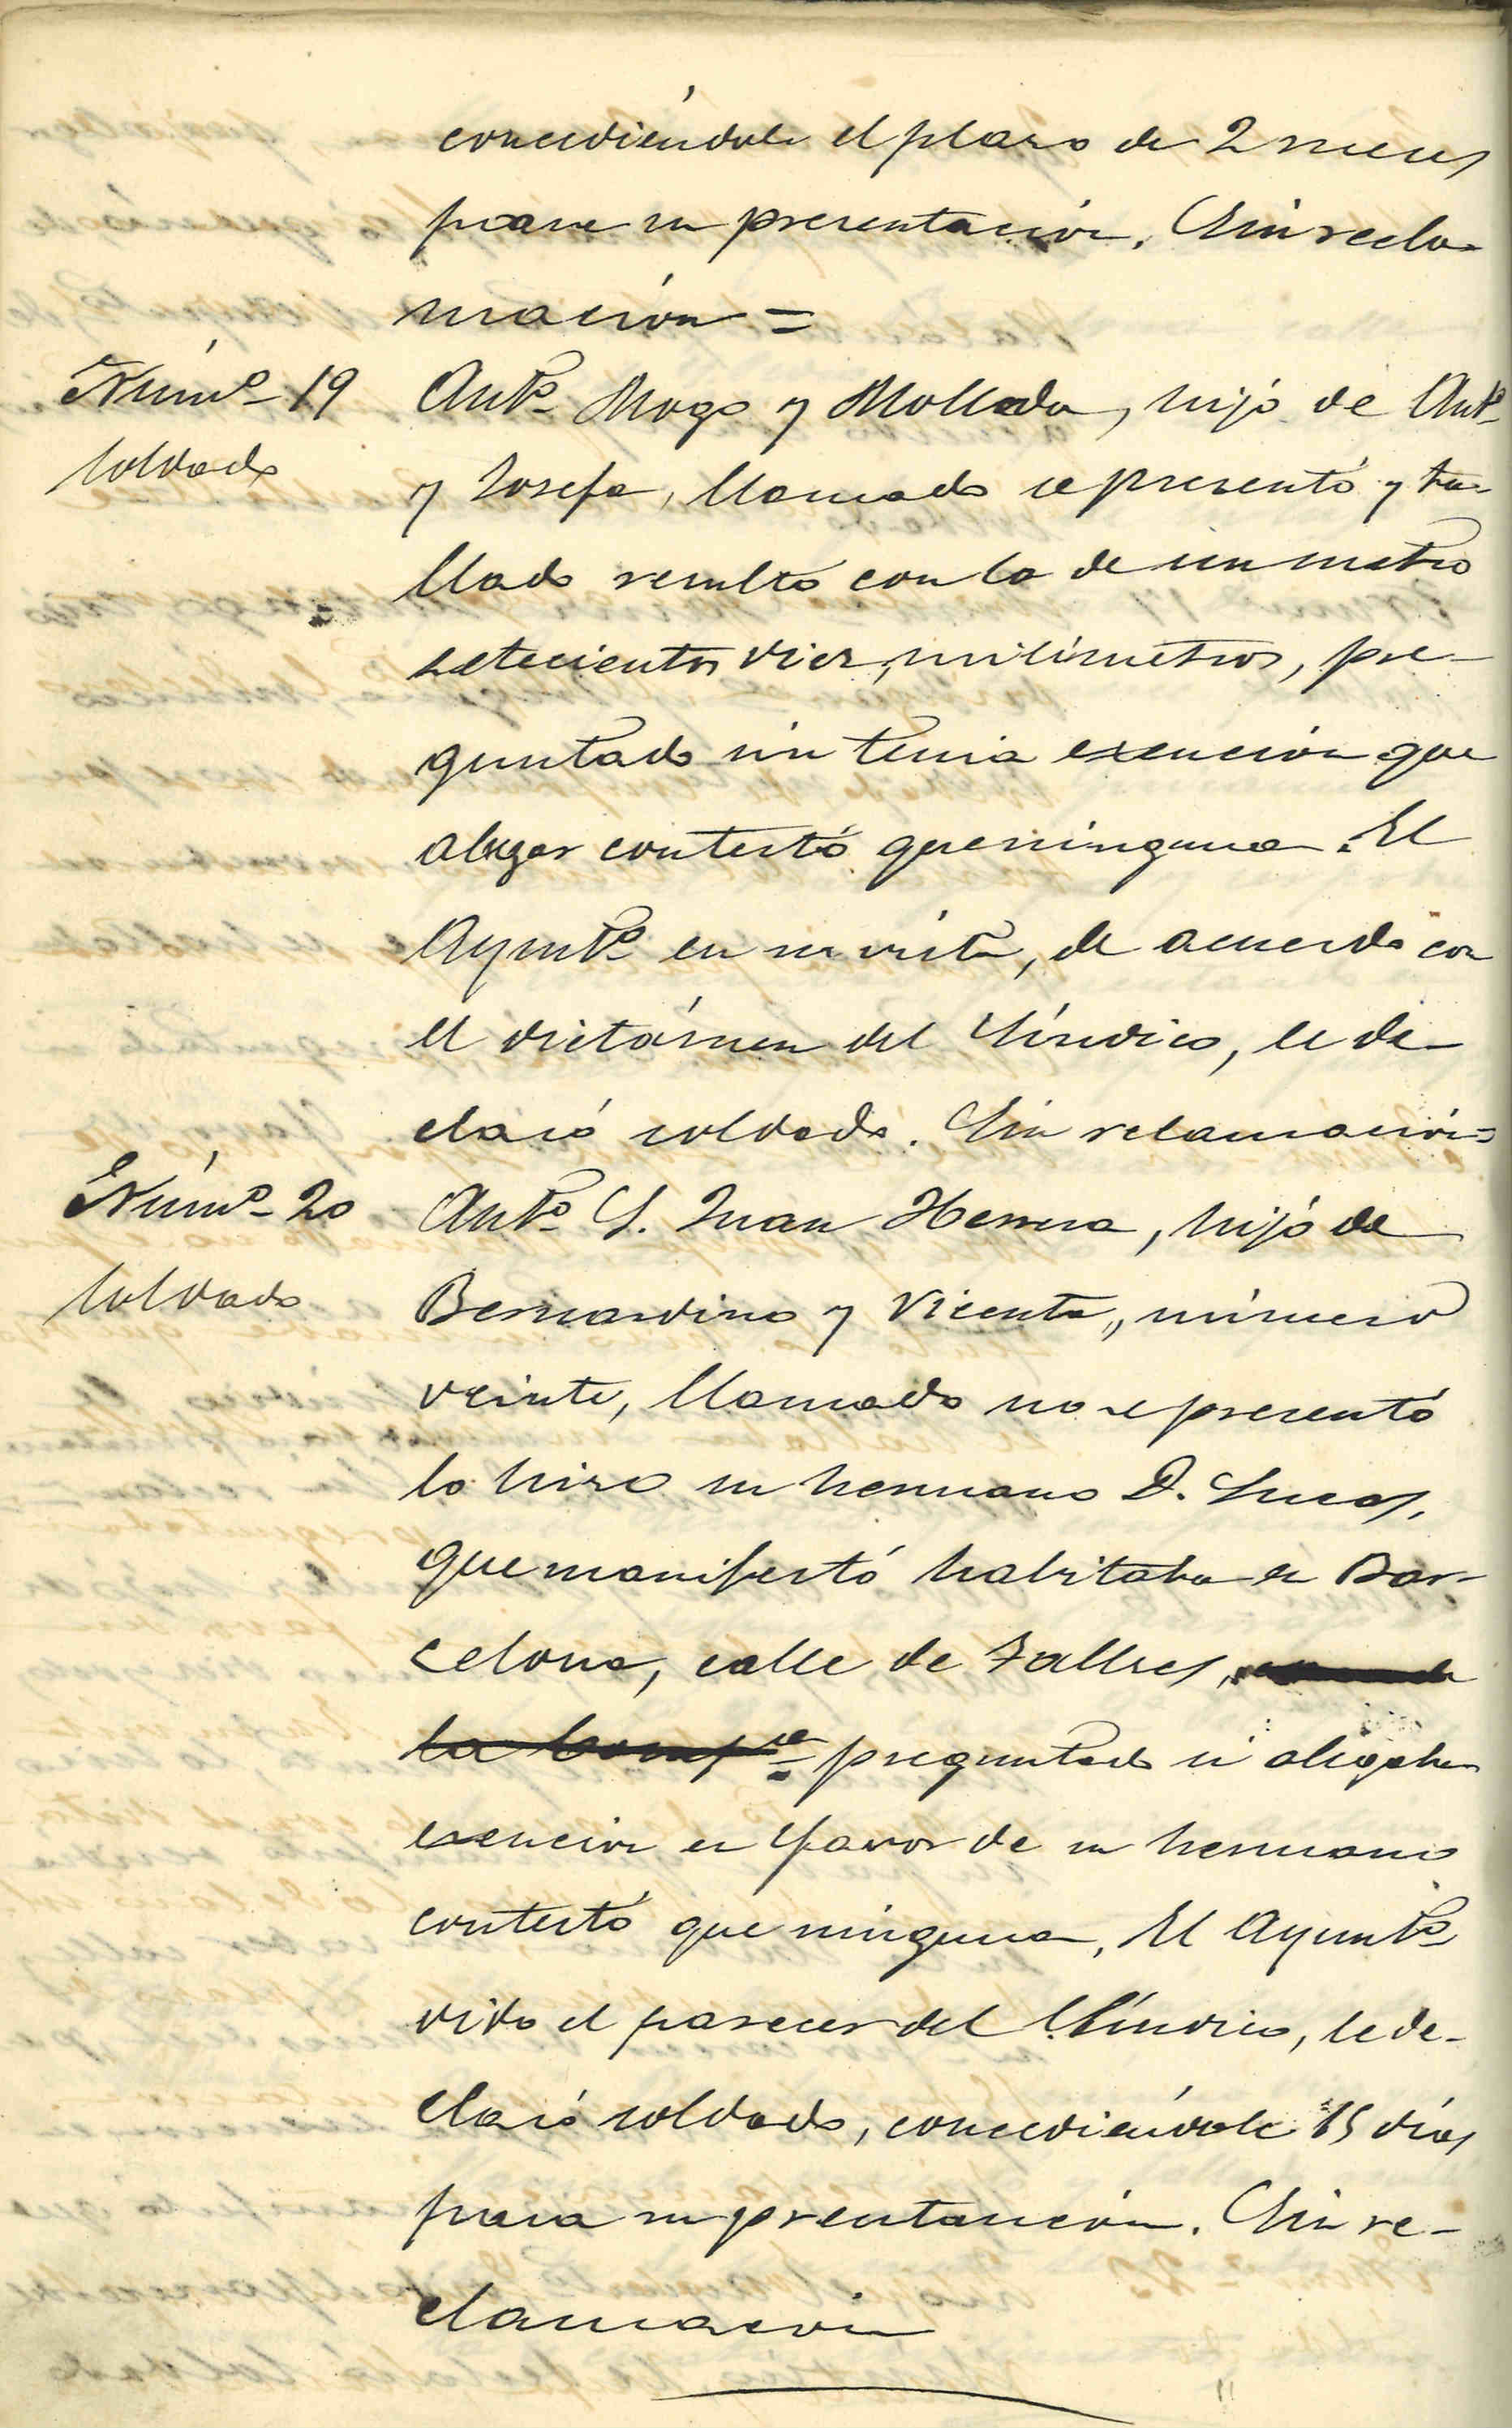 concediéndole el plazo de 2 meses
para su presentación. Sin recla-
mación =
Núm.º 19
soldado
Ant.º Mogo y Mollada, hijo de Ant.º
y Josefa, llamado se presentó y ta-
llado resultó con la de un metro
setecientos diez, milímetros, pre-
guntado sin tenia exención que
alegar contestó que ninguna. El
Ayunt.º en su vista, de acuerdo con
el dictámen del Síndico, le de-
claró soldado. Sin relamación=
Núm.º 20
soldado
Ant.º S. Juan Herrera, hijo de
Bernardino y Vicenta, número
veinte, llamado no se presentó
lo hizo su hermano D. Lucas,
que manifestó habitaba en Bar-
celona, calle de Tallres,
la Comp.ia preguntado si alegaba
exención en favor de su hermano
contestó que ninguna. El Ayunt.º
visto el parecer del Síndico, le de-
claró soldado, concediéndole 15 días
para su prentanción. Sin re-
clamación